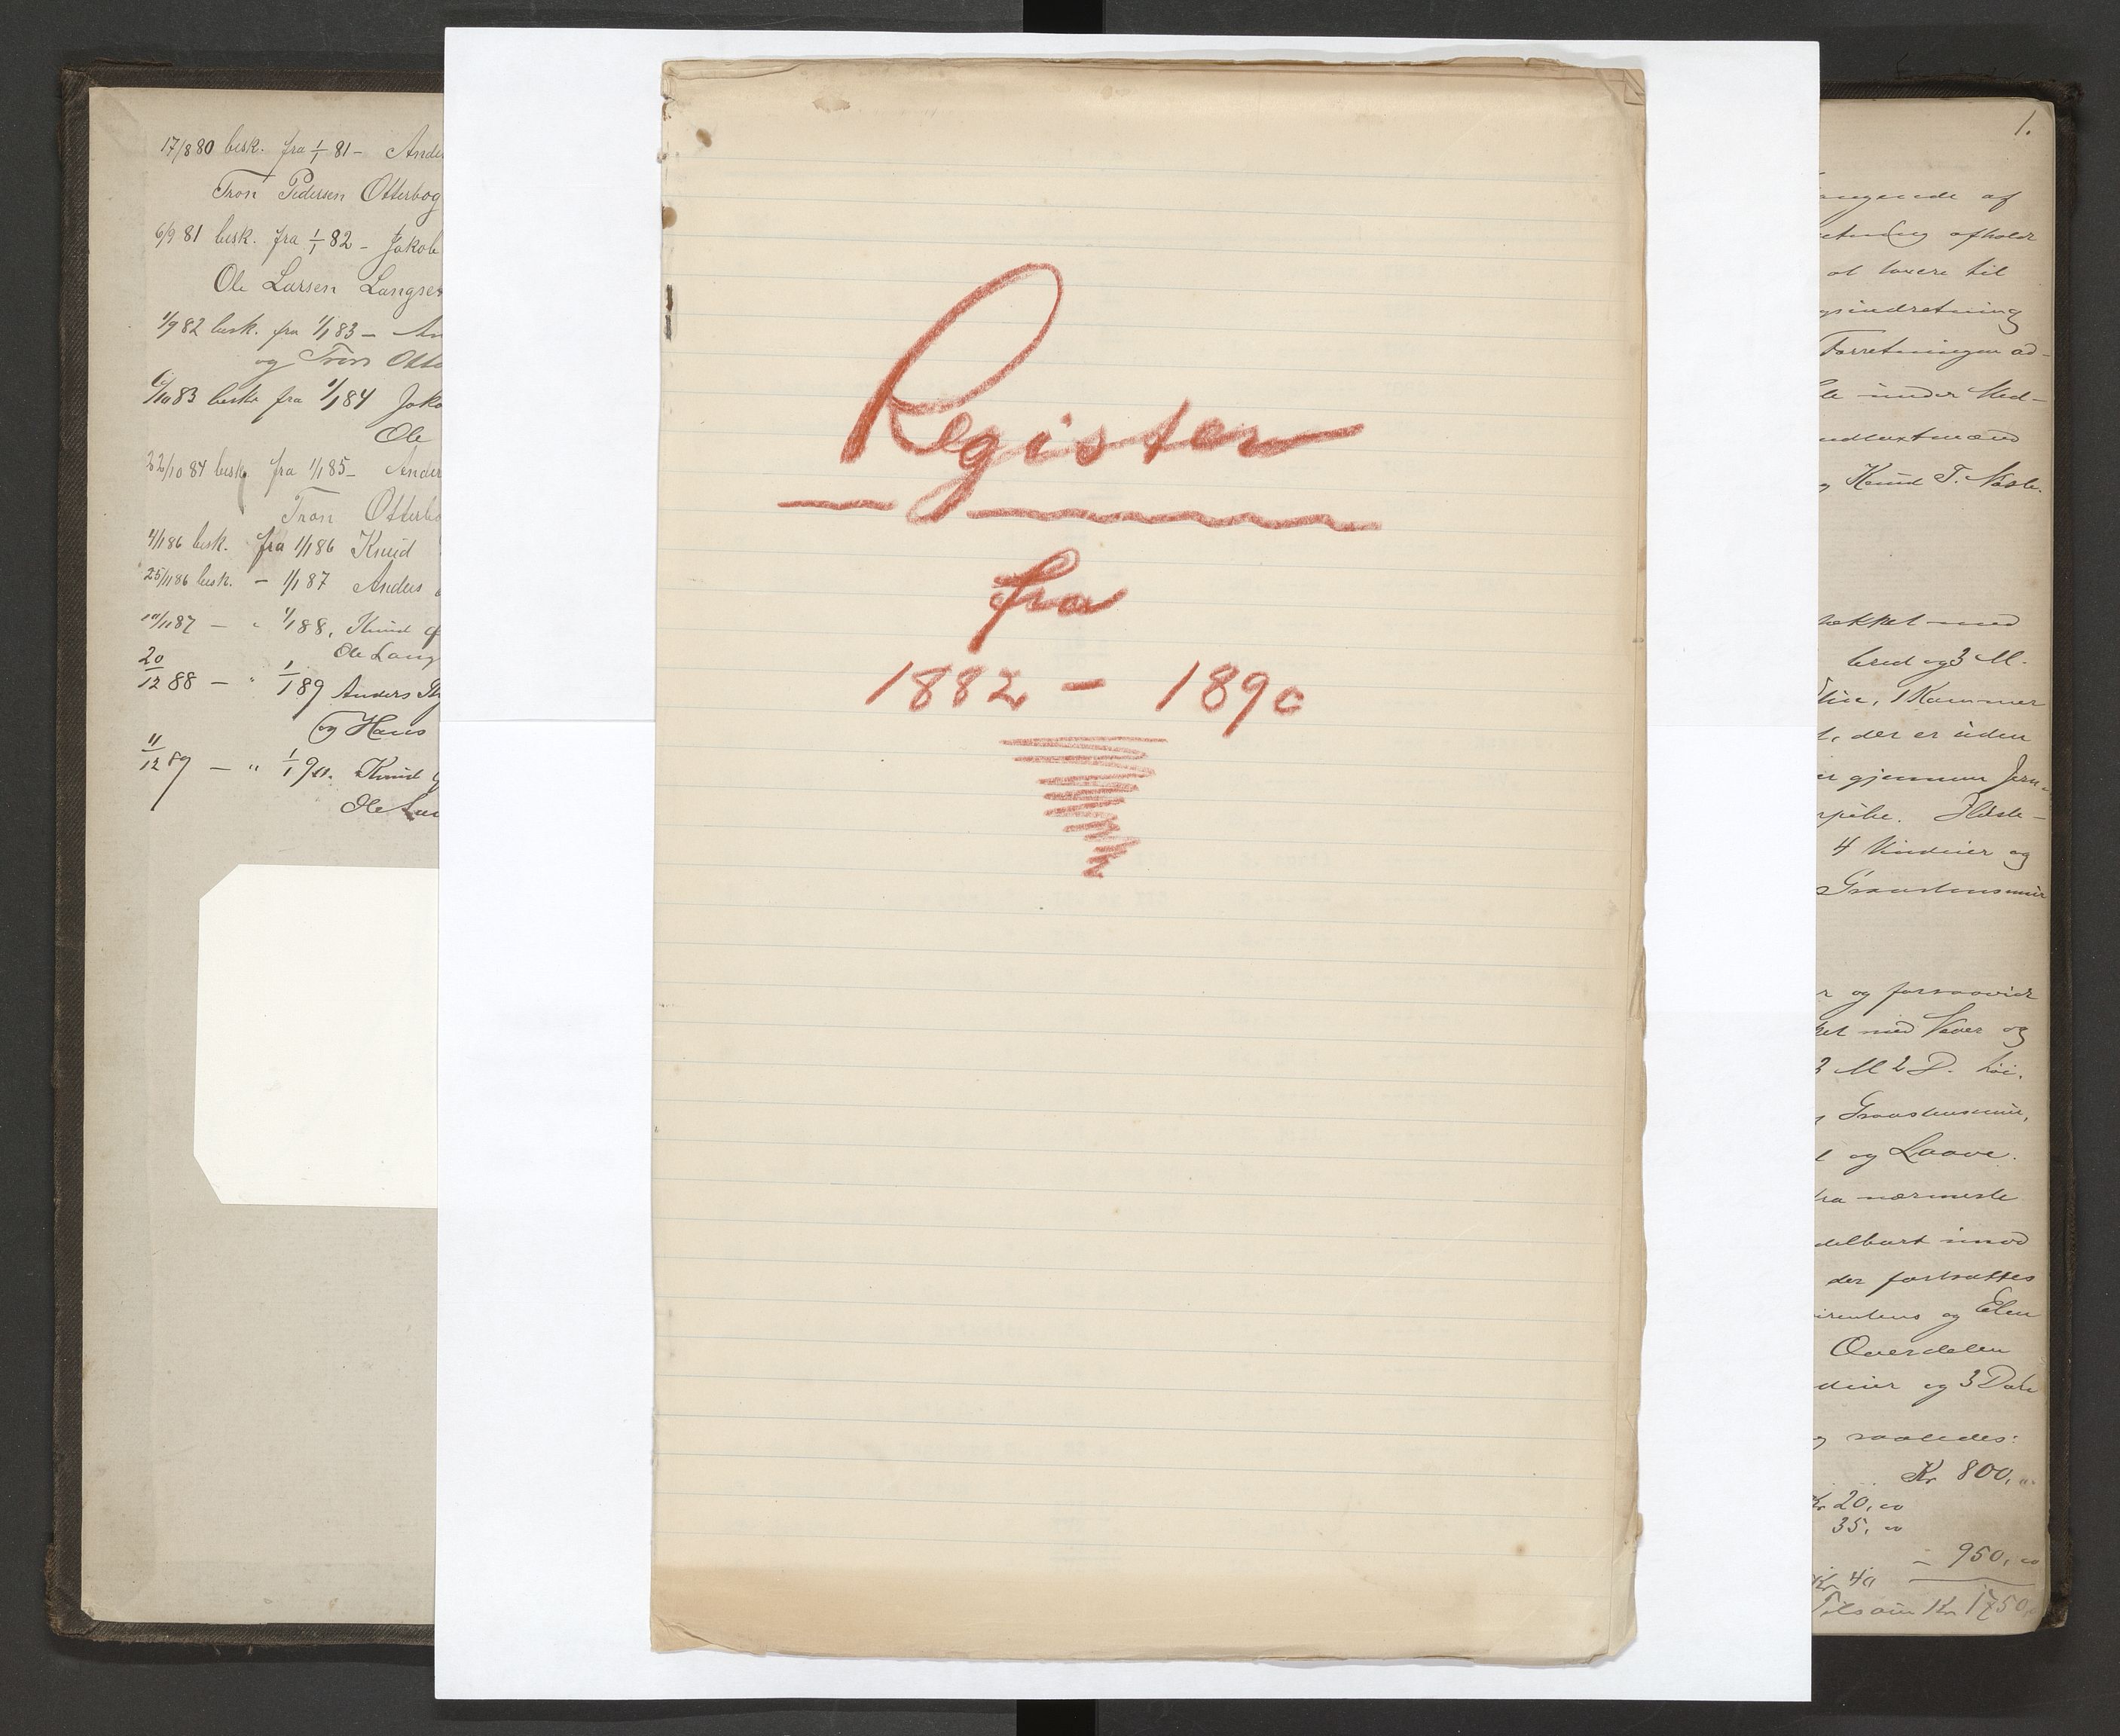 17/8 80 besk. fra 1/1 81 - Ande
Tron Pedersen Otterbog
6/9 81 besk. fra 1/1 82 - Jakob
Ole Larsen Langset
1/9 82 besk. fra 1/1 83 - An
og Tron Otte
6/10 83 besk. fra 1/1 84 Jako
Ole
22/10 84 besk. fra 1/1 85 - Ander
Tron Otterbo
4/1 86 besk. fra 1/1 86 Knud
25/11 86 besk. - 1/1 87 Anders
10/11 87 - " 1/1 88, Knud
Ole Lang
20/12 88 - " 1/1 89 Anders
og Hans
11/12 89 - " 1/1 90. Knud
Ole
Register
fra
1882 - 1890
1.
af
afholdt
at taxere til
gsindretning
Forretningen ad-
le under Ked-
Knud T.
med
bred og 3 M.
1 Kammer
der er uden
gjennem Jern-
4 Vinduer og
Graastensmur
og forsaavidt
ket med Næver og
3 M 2 D. høi.
Graastensmur,
og Laave.
fra nærmeste
delbart imod
der fortsattes
og Elen
Overdelen
og 3 Døre
saaledes:
Kr 800,
Kr 20, 00
35, 00
- 950, 00
Kr 40
Tilsam Kr 1750,